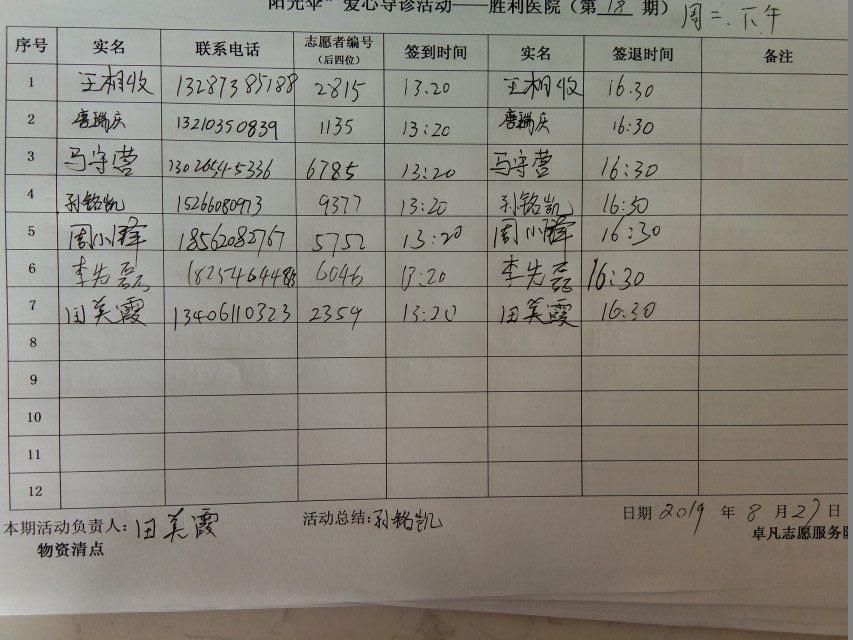 阳光伞”爱心导诊活动——胜利医院（第18期）周二.下午
序号 实名 联系电话 志愿者编号（后四位） 签到时间 实名 签退时间 备注
1 王相收 13287385188 2815 13.20 王相收 16.30
2 唐瑞庆 13210350839 1135 13:20 唐瑞庆 16:30
3 马守营 13026545336 6785 13:20 马守营 16:30
4 孙铭凯 15266080973 9377 13:20 孙铭凯 16:30
5 周小峰 18562082767 5752 13:20 周小峰 16:30
6 李先磊 18254644 6046 13:20 李先磊 16:30
7 田美霞 13406110323 2359 13:20 田美霞 16:30
8
9
10
11
12
本期活动负责人：田美霞 活动总结：孙铭凯 日期 2019 年 8 月 27 日
物资清点 卓凡志愿服务队